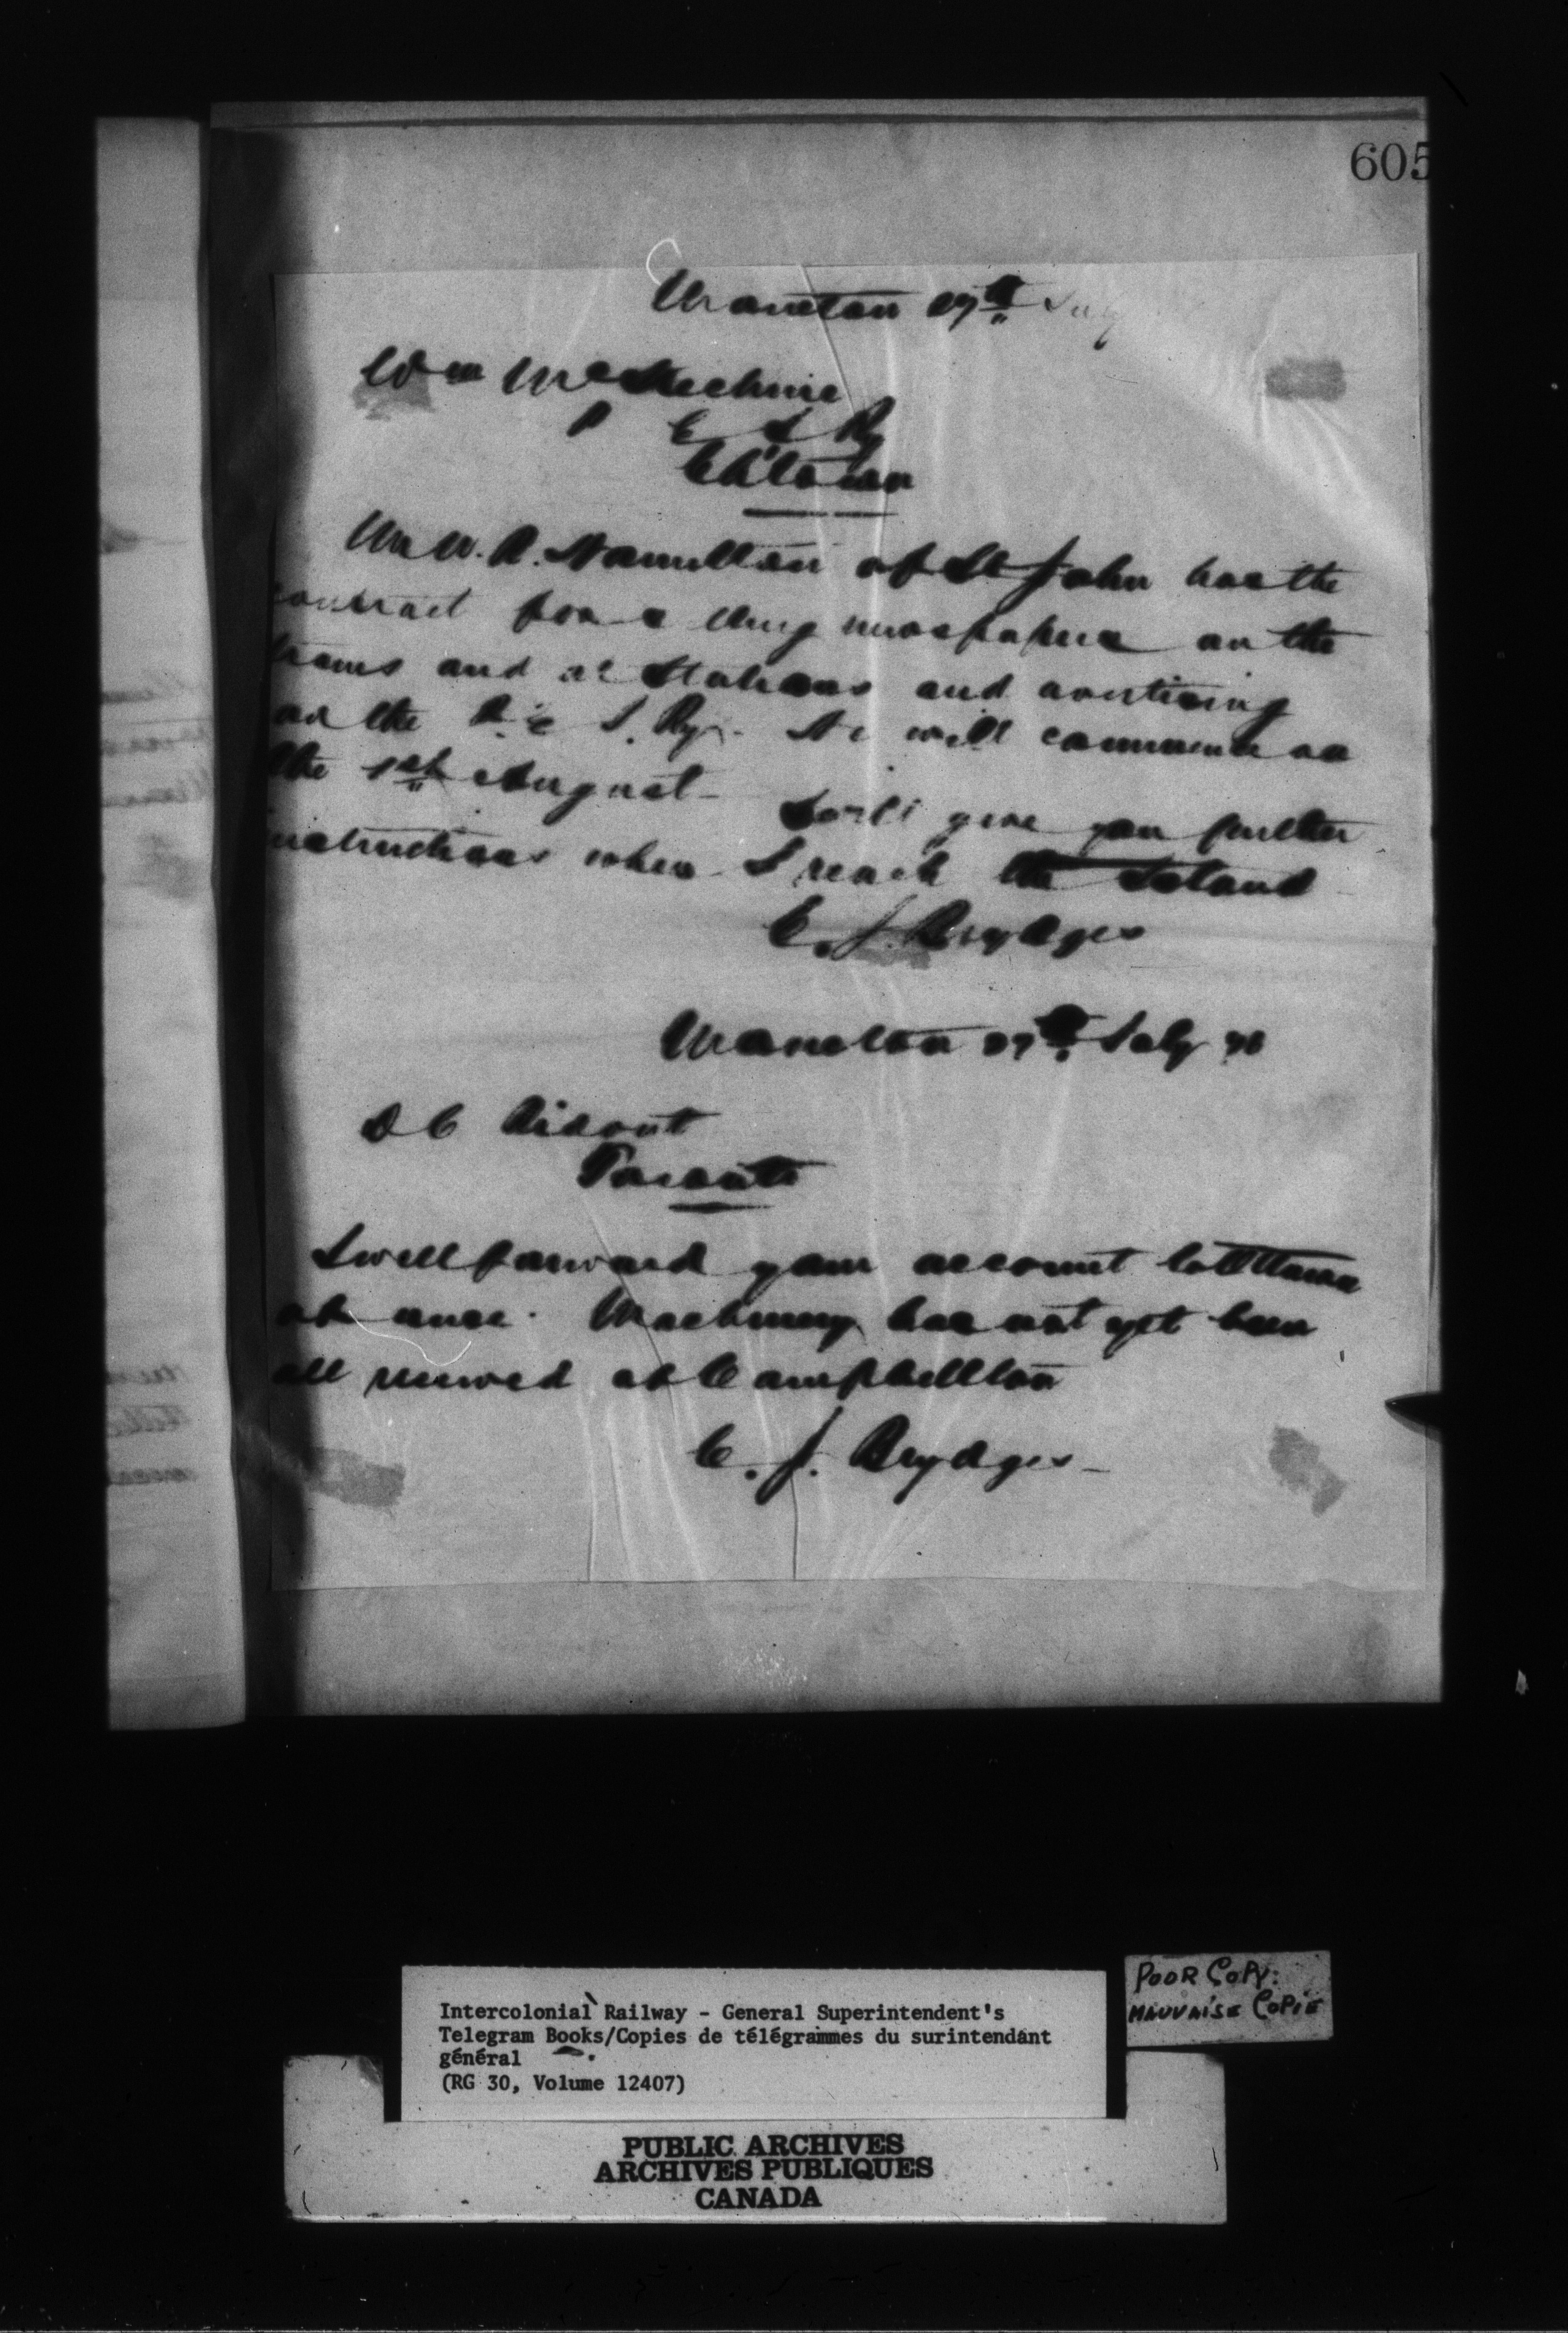 605
Moncton 27th July
Wm McKechnie
P E I Ry
Ch'town
Mr W. R. Hamilton of St John has the
contract for newspapers on the
trains and at Stations and advertising
on the P. E I. Ry. He will commence on
the 1st August - I will give you further
instructions when I reach the Island
C. J. Brydges
Moncton 27th July 76
D C Ridout
Toronto
I will forward your account to Ottawa
at once. Machinery has not yet been
all received at Campbellton
C. J. Brydges
POOR COPY:
MAUVAISE COPIE
Intercolonial Railway - General Superintendent's
Telegram Books/Copies de télégrammes du surintendant
général
(RG 30, Volume 12407)
PUBLIC ARCHIVES
ARCHIVES PUBLIQUES
CANADA